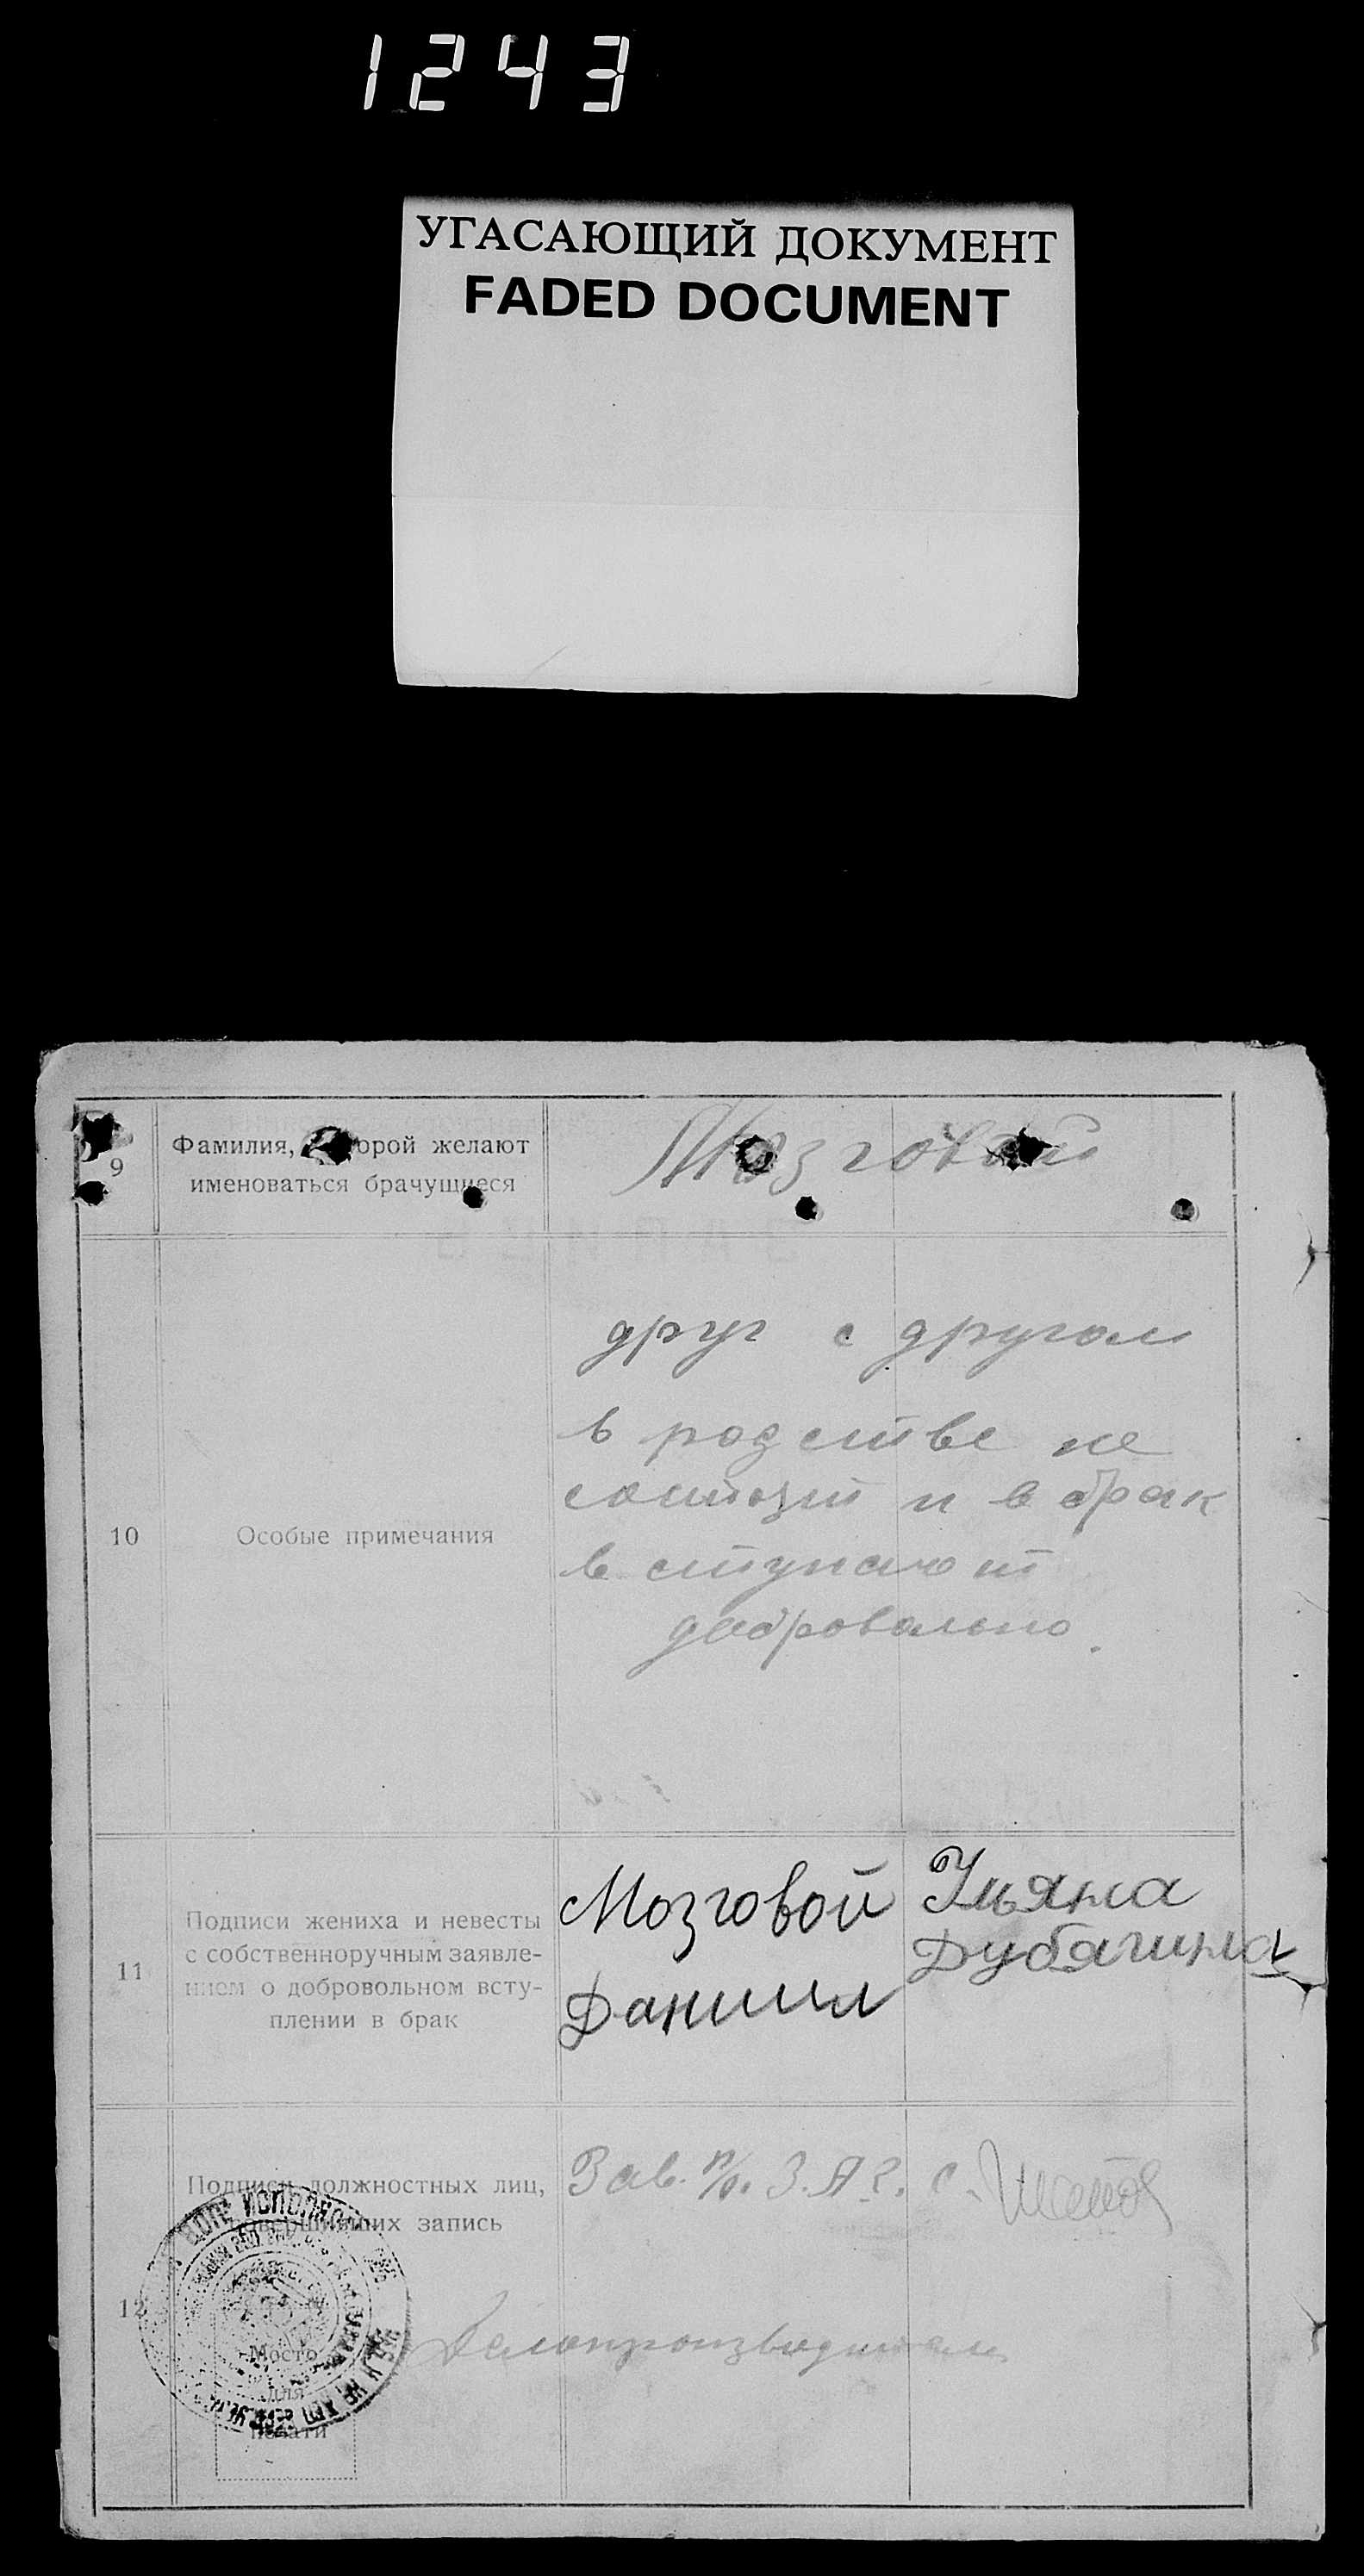 1243
УГАСАЮЩИЙ ДОКУМЕНТ
FADED DOCUMENT
9
Фамилия, которой желают
именоваться брачущиеся
Мозговой
10
Особые примечания
друг с другом
в родстве не
состоят и в брак
вступают
добровольно.
11
Подписи жениха и невесты
с собственноручным заявле-
нием о добровольном всту-
плении в брак
Мозговой
Даниил
Ульяна
Дубягина
12
Подписи должностных лиц,
совершивших запись
Зав. п/о. З.А.Г. С.
Делопроизводитель
Место
для
печати